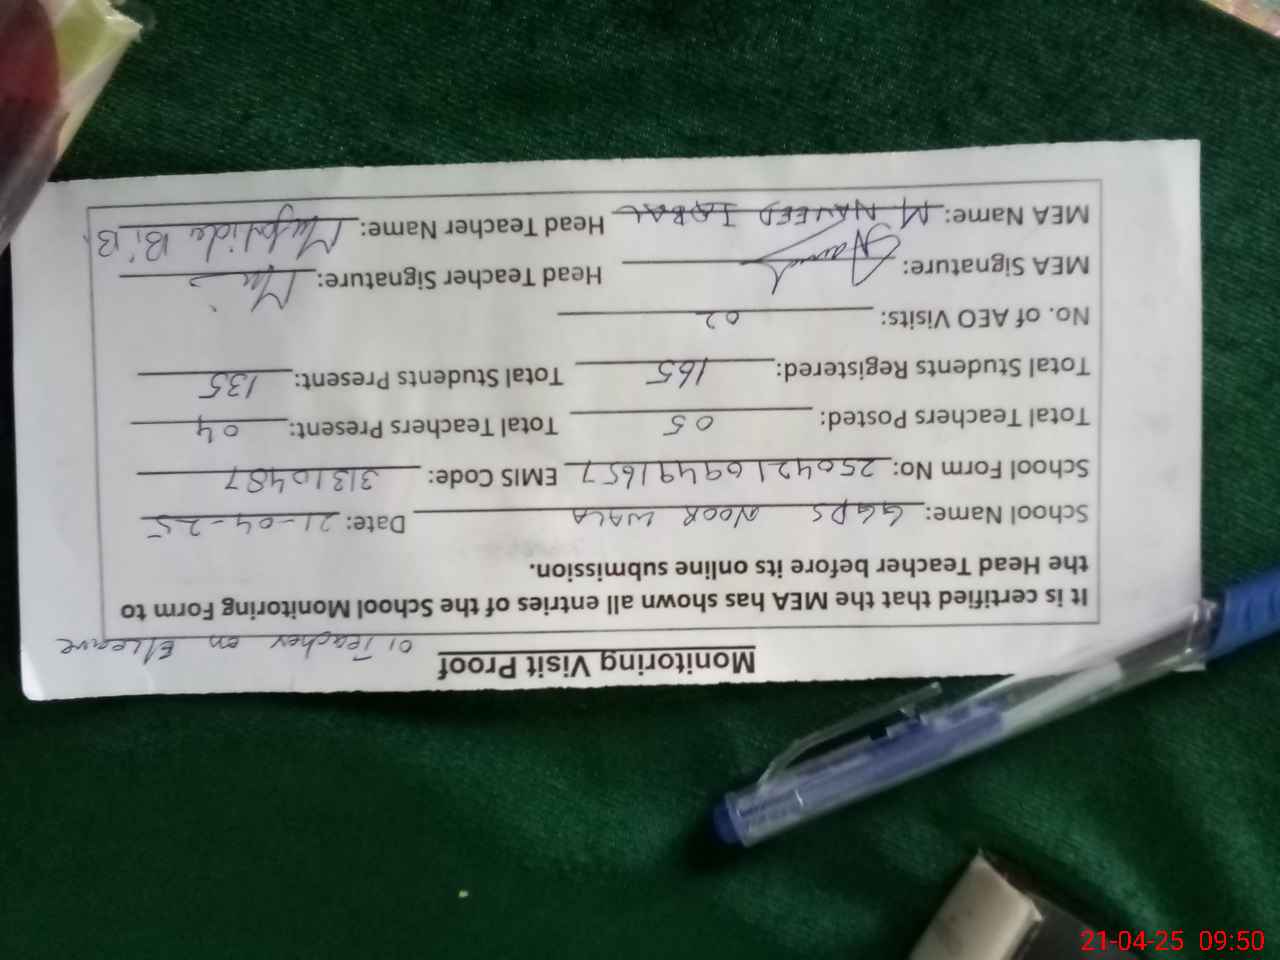 Monitoring Visit Proof 01 Teacher on E/Leave
It is certified that the MEA has shown all entries of the School Monitoring Form to
the Head Teacher before its online submission.
School Name: GGPS NOOR WALA Date: 21-04-25
School Form No: 25042109491657 EMIS Code: 31310487
Total Teachers Posted: 05 Total Teachers Present: 04
Total Students Registered: 165 Total Students Present: 135
No. of AEO Visits: 02
MEA Signature: Head Teacher Signature:
MEA Name: M NAVEED IQBAL Head Teacher Name: BiBi
21-04-25 09:50